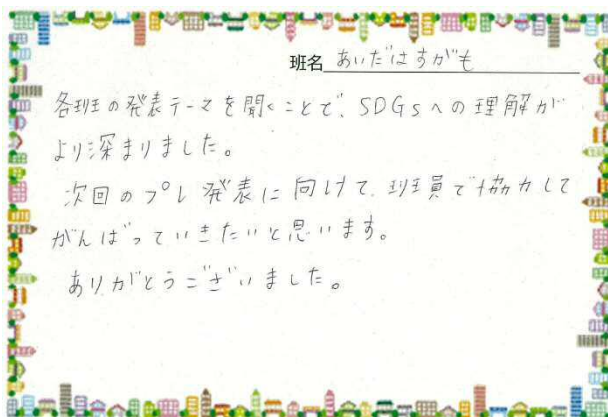 班名 あいだはすがも
各班の発表テーマを聞くことで、SDGsへの理解が
より深まりました。
次回のプレ発表に向けて、班員で協力して
がんばっていきたいと思います。
ありがとうございました。